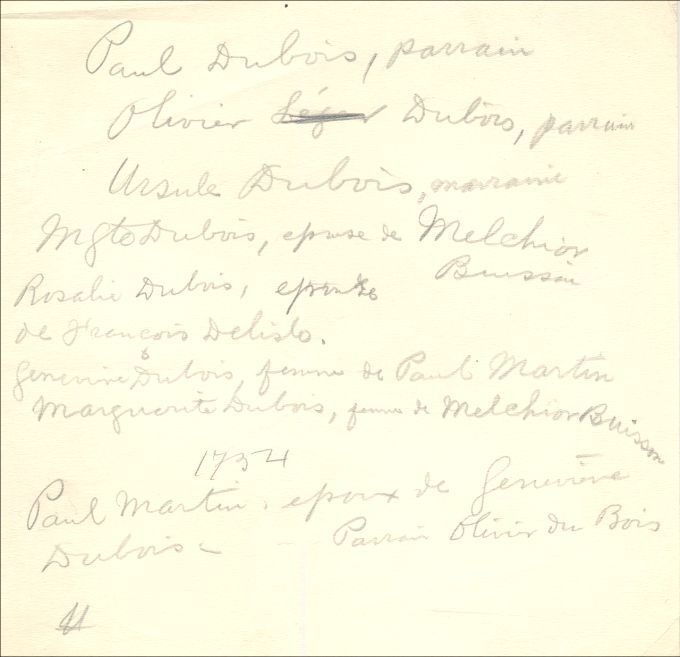 Paul Dubois, parrain
Olivier Léger Dubois, parrain
Ursule Dubois, marraine
Mgte Dubois, epouse de Melchior
Buisson
Rosalie Dubois, epouse
de François Delisle.
Geneviève Dubois, femme de Paul Martin
Marguerite Dubois, femme de Melchior Buisson
1734
Paul Martin, epoux de Geneviève
Dubois - Parrain Olivier du Bois